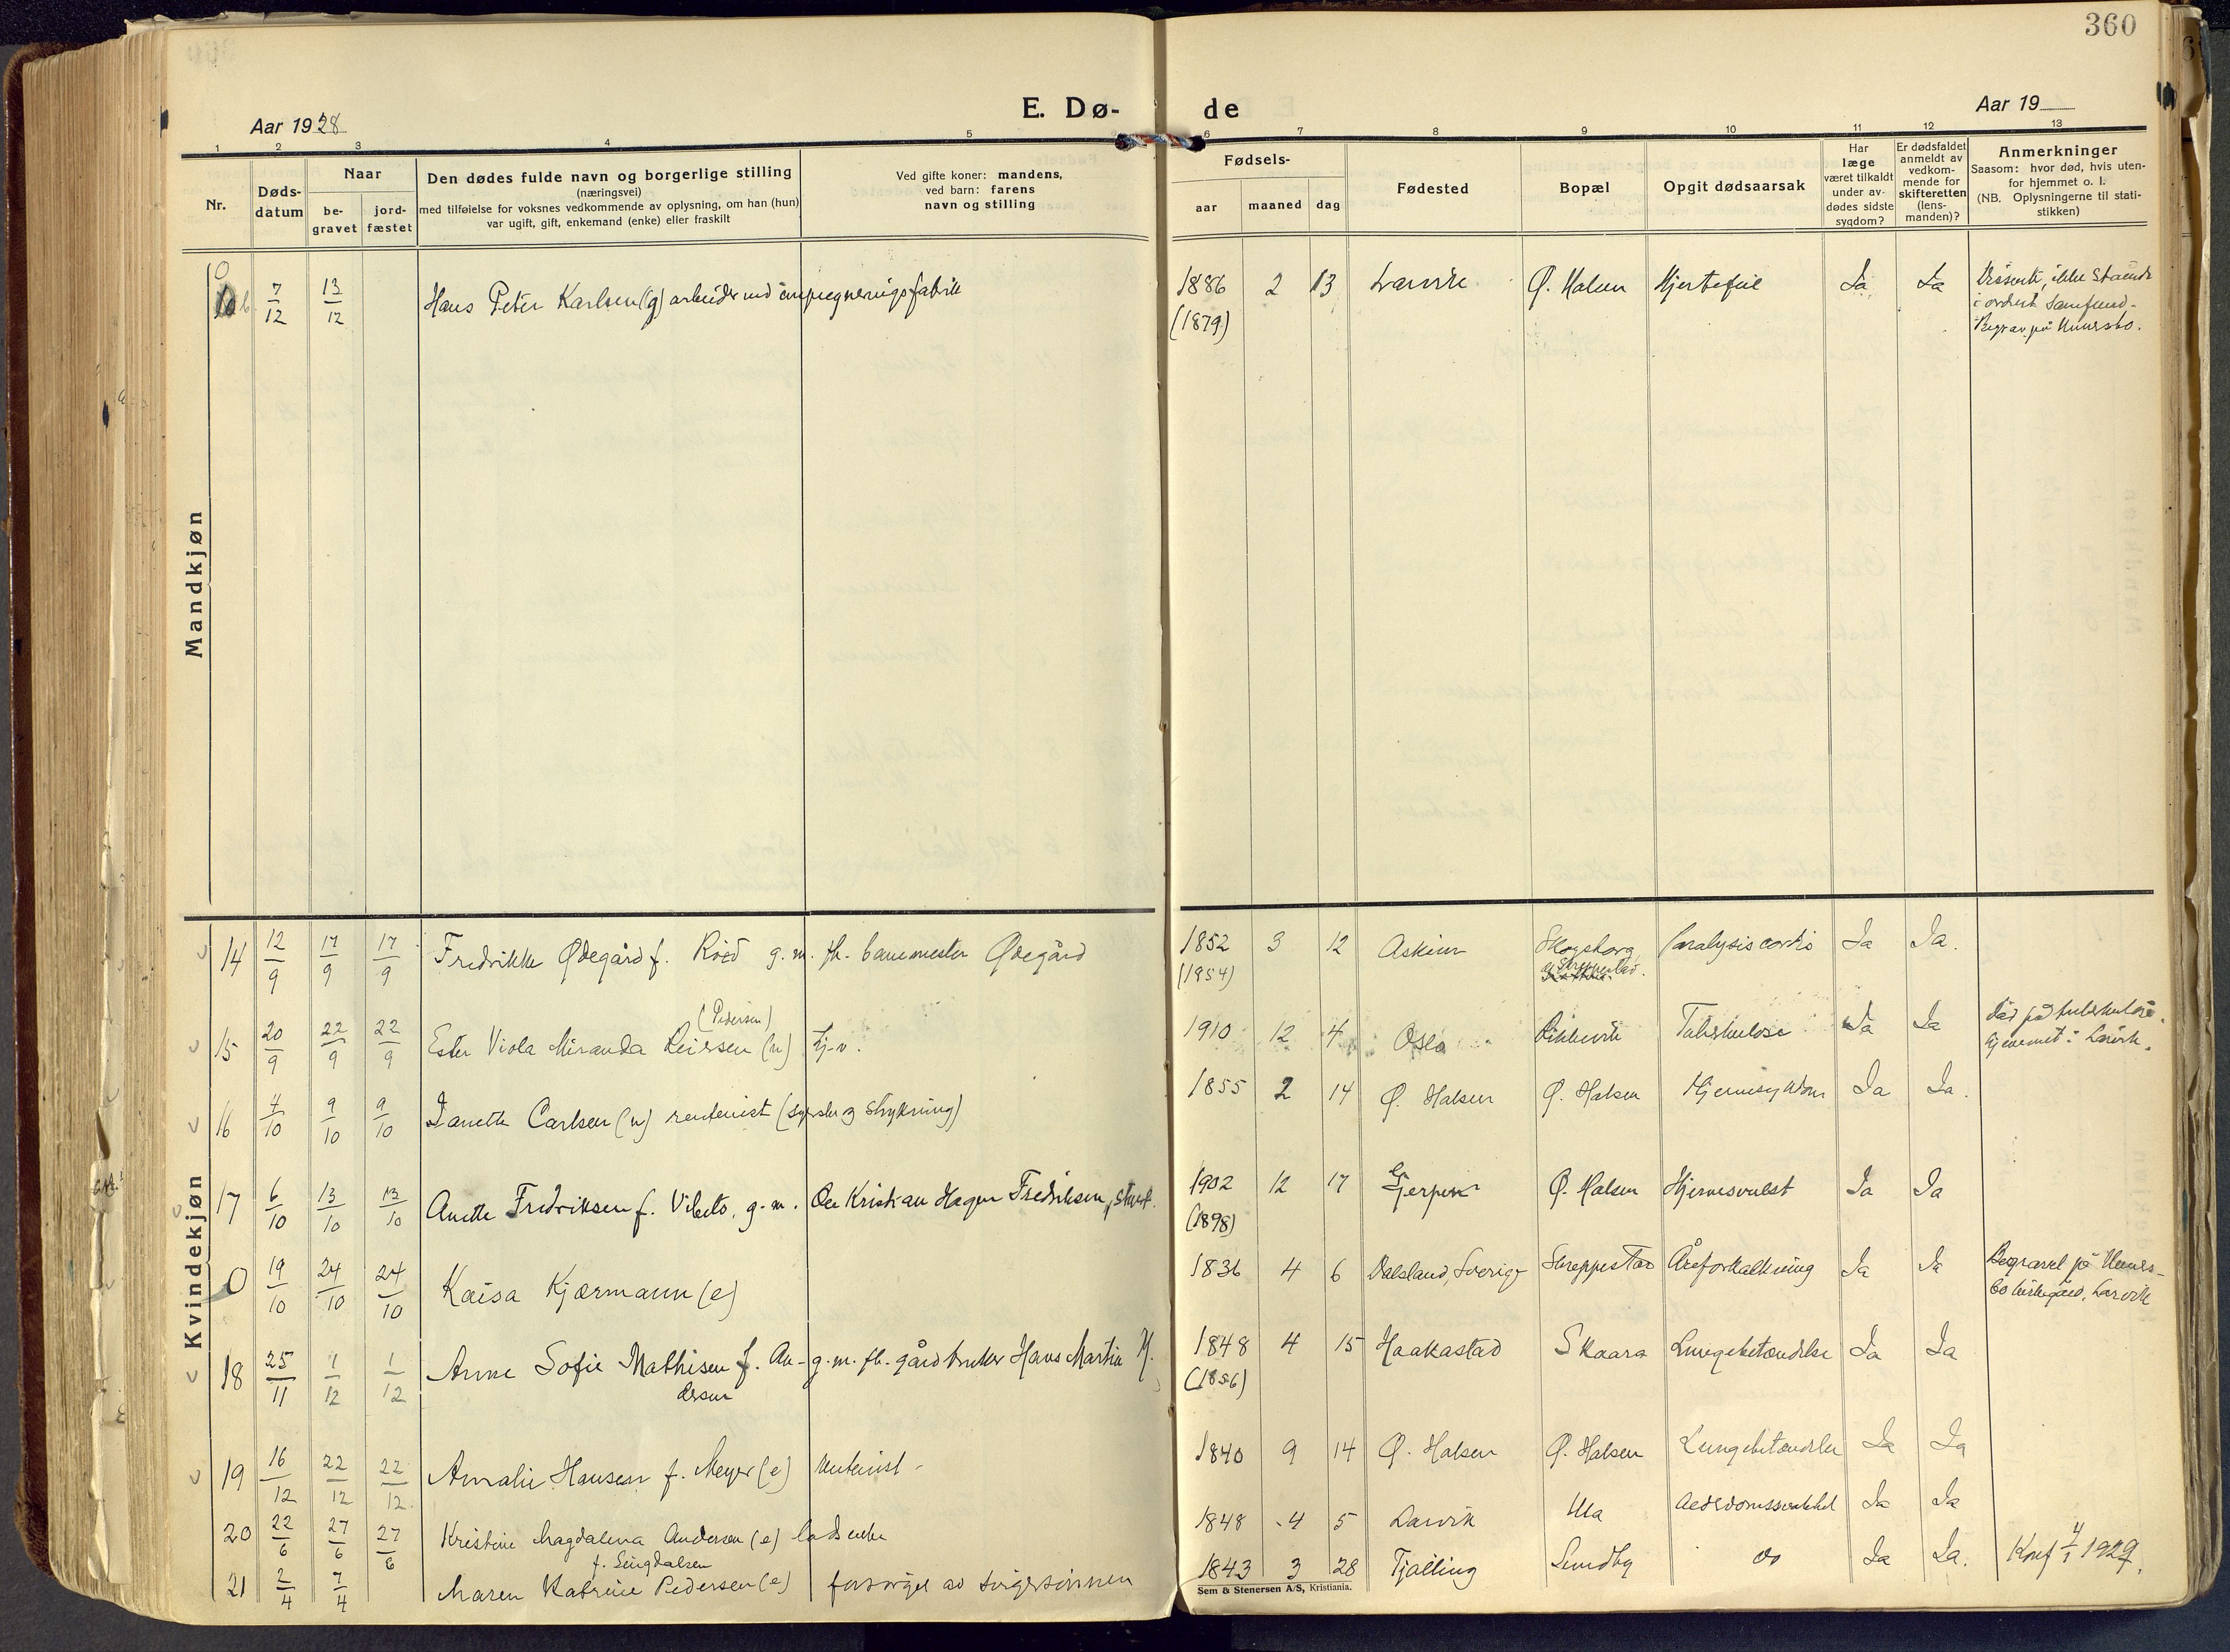 360
Aar 1928
E. Dø-
de
Aar 19
1 2 3 4 5 6 7 8 9 10 11 12 13
Nr.
Døds-
datum
Naar
be-
gravet
jord-
fæstet
Den dødes fulde navn og borgerlige stilling
(næringsvei)
med tilføielse for voksnes vedkommende av oplysning, om han (hun)
var ugift, gift, enkemand (enke) eller fraskilt
Ved gifte koner: mandens,
ved barn: farens
navn og stilling
Fødsels-
aar maaned dag
Fødested
Bopæl
Opgit dødsaarsak
Har
læge
været tilkaldt
under av-
dødes sidste
sygdom?
Er dødsfaldet
anmeldt av
vedkom-
mende for
skifteretten
(lens-
manden)?
Anmerkninger
Saasom: hvor død, hvis uten-
for hjemmet o. l.
(NB. Oplysningerne til stati-
stikken)
Mandkjøn
0 7/12 13/12 Hans Peter Karlsen (g) arbeider ved impregneringsfabrik 1886 2 13 Larvik Ø. Halsen Hjertefeil Ja Ja Dissenter, ikke staaende
(1879) i ordnet samfund-
Begrav. på Undersbo.
Kvindekjøn
14 12/9 17/9 17/9 Fredrikke Ødegård f. Röed g.m. fh. banemester Ødegård 1852 3 12 Askim Skogsborg Paralysis cordis Ja Ja.
(1854)
(Pedersen)
15 20/9 22/9 22/9 Ester Viola Miranda Reiersen (u) tj-v. 1910 12 4 Oslo Tuberkulose Ja Ja Död på tuberkulose-
hjemmet i Larvik.
16 4/10 9/10 9/10 Janette Carlsen (u) rentenist (syerske og strykning) 1855 2 14 Ø. Halsen Ø. Halsen Hjernesykdom Ja Ja.
17 6/10 13/10 13/10 Anette Fredriksen f. Vibeto, g.m. Ole Kristian Hagen Fredriksen, 1902 12 17 Gjerpen Ø. Halsen Hjernesvulst Ja Ja
(1898)
0 19/10 24/10 24/10 Kaisa Kjærmann (e) 1836 4 6 Dalsland, Sverige Skreppestad Åreforkalkning Ja Ja Begravet på Unders-
bo kirkegård, Larvik
18 25/11 1/12 1/12 Anne Sofie Mathisen f. An- g.m. fh. gårdbruker Hans Martin M. 1848 4 15 Haakastad Skaara Lungebetændelse Ja Ja
dersen (1856)
19 16/12 22/12 22/12 Amalie Hansen f. Meyer (e) rentenist - 1840 9 14 Ø. Halsen Ø. Halsen Lungebetændelse Ja Ja
20 22/6 27/6 27/6 Kristine Magdalena Andersen (e) losenke 1848 4 5 Larvik Ula Alderdomssvakhet Ja Ja
21 2/4 7/4 Maren Katrine Pedersen (e) forsørget av svigersønnen 1843 3 28 Tjølling Lundby do Ja Ja. Konf 4/1 1929.
Sem & Stenersen A/S, Kristiania.